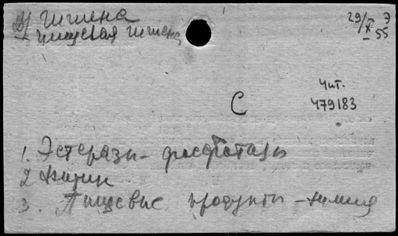 Гигиена
пищевая гигиена
29/X Э
55
С
Чит.
479183
1. Эстеразы - фосфатазы
2
3. Пищевые продукты - химия